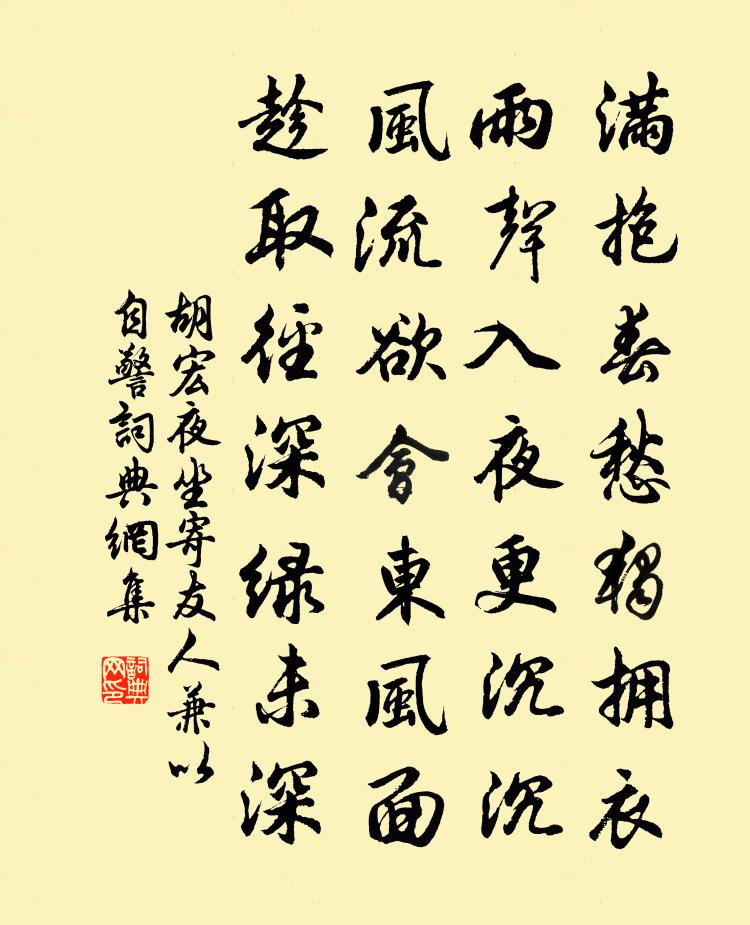 滿抱春愁獨擁衣
雨聲入夜更沉沉
風流欲會東風面
趁取徑深綠未深
胡宏夜坐寄友人兼以
自警詞典網集
詞典
网印